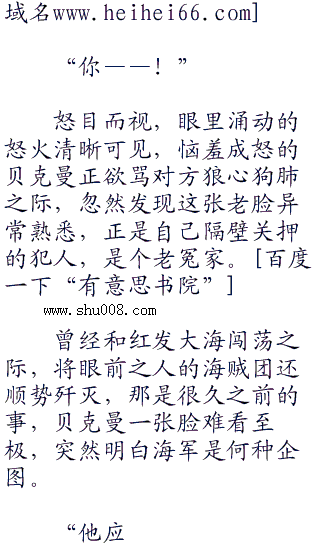 域名www.heihei66.com]
“你——！”
怒目而视，眼里涌动的
怒火清晰可见，恼羞成怒的
贝克曼正欲骂对方狼心狗肺
之际，忽然发现这张老脸异
常熟悉，正是自己隔壁关押
的犯人，是个老冤家。[百度
一下“有意思书院”]
www.shu008.com
曾经和红发大海闯荡之
际，将眼前之人的海贼团还
顺势歼灭，那是很久之前的
事，贝克曼一张脸难看至
极，突然明白海军是何种企
图。
“他应